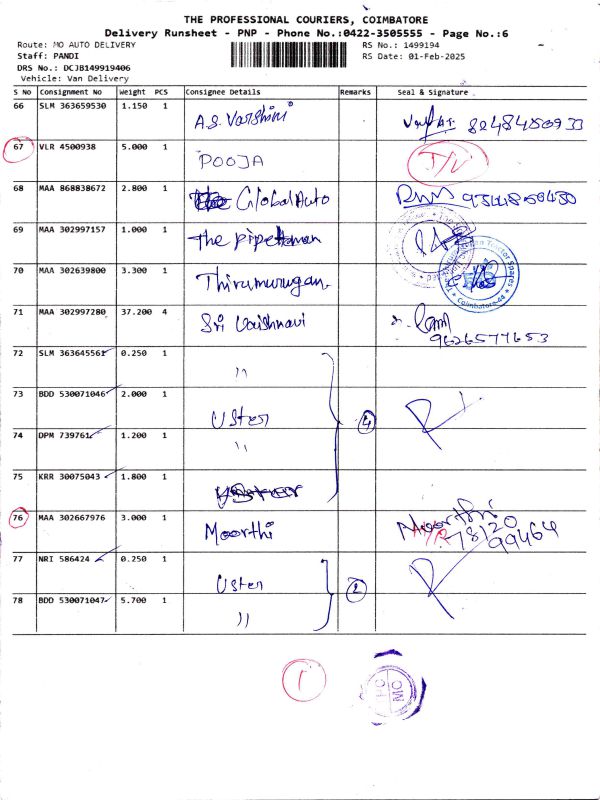 THE PROFESSIONAL COURIERS, COIMBATORE
Delivery Runsheet - PNP - Phone No.:0422-3505555 - Page No.:6
Route: MO AUTO DELIVERY RS No.: 1499194
Staff: PANDI RS Date: 01-Feb-2025
DRS No.: DCJB149919406
Vehicle: Van Delivery
S No Consignment No Weight PCS Consignee Details Remarks Seal & Signature
66 SLM 363659530 1.150 1 A.S. Varshini
67 VLR 4500938 5.000 1 POOJA
68 MAA 868838672 2.800 1 Global Auto
69 MAA 302997157 1.000 1 The
70 MAA 302639800 3.300 1 Thirumurugan.
Coimbatore
71 MAA 302997280 37.200 4 Sri Vaishnavi 9626577653
72 SLM 363645561 0.250 1 ''
73 BDD 530071046 2.000 1 Uster 4
74 DPM 739761 1.200 1 ''
75 KRR 30075043 1.800 1
76 MAA 302667976 3.000 1 Moorthi Moorthi 78120
99464
77 NRI 586424 0.250 1 Uster 2
78 BDD 530071047 5.700 1 ''
1
MO